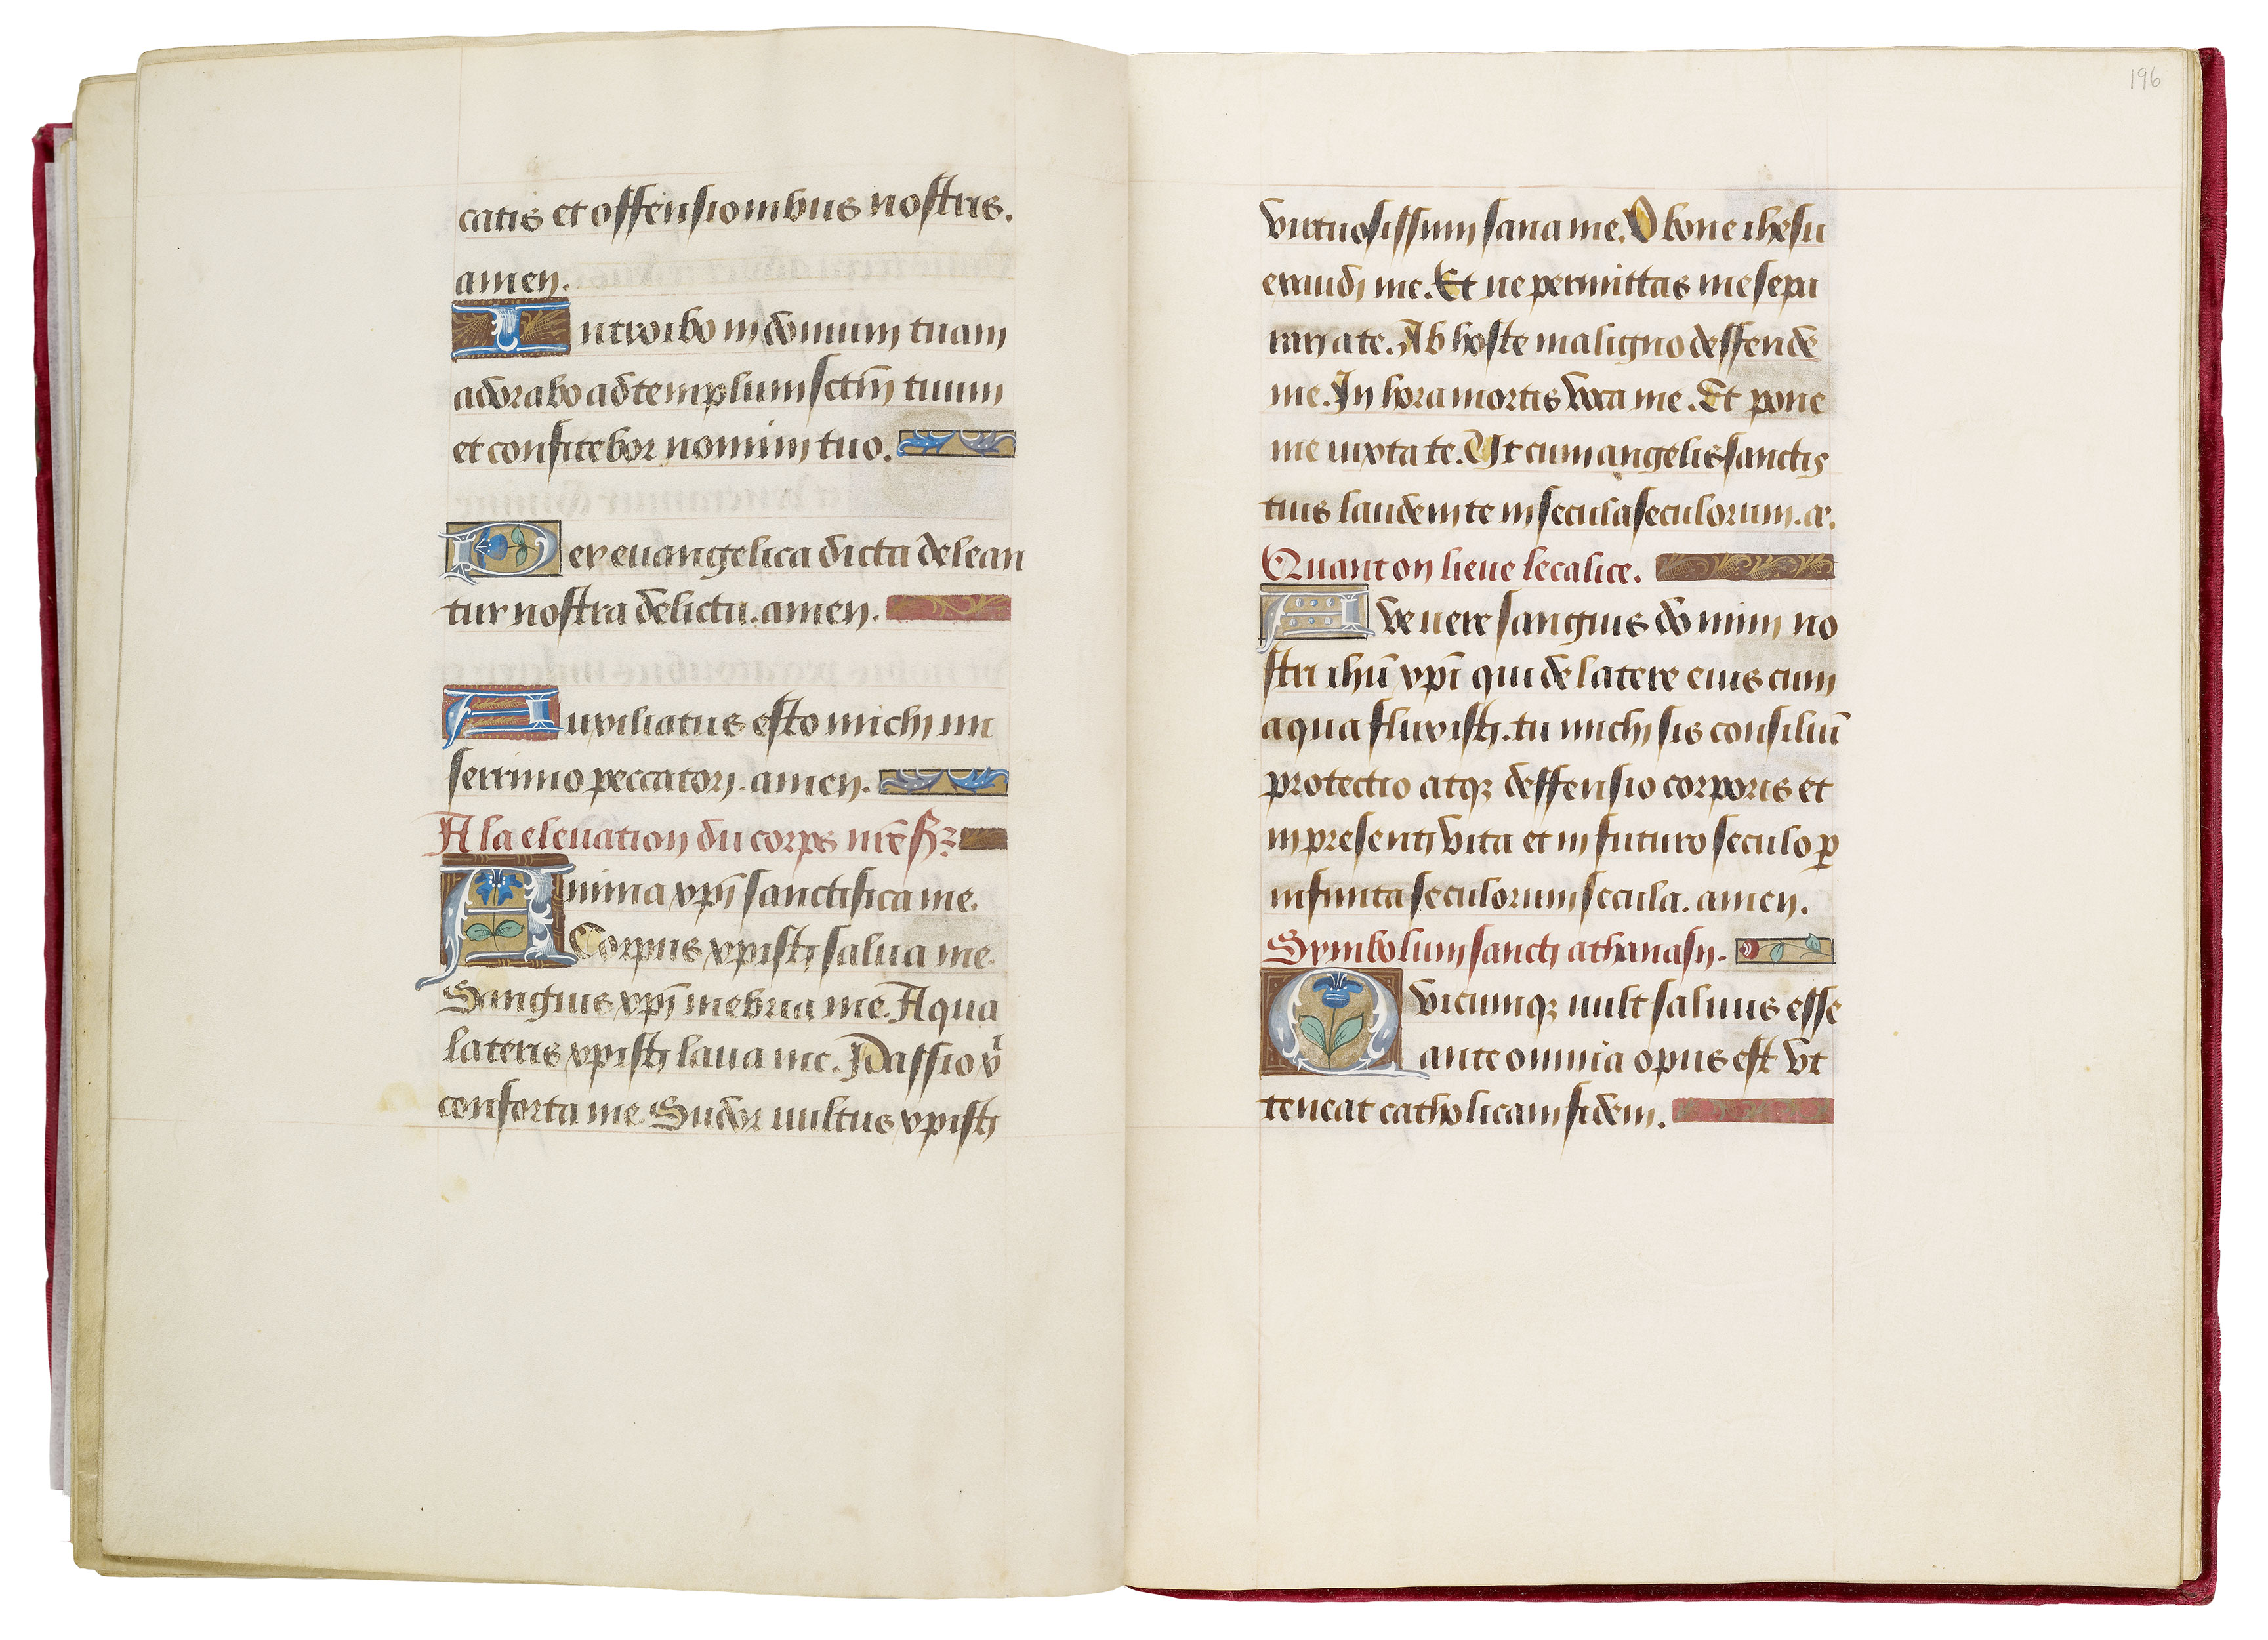 catis et offensionibus nostris.
amen.
Introibo in domum tuam
adorabo ad templum sctm̄ tuum
et confitebor nomini tuo.
Per euangelica dicta delean
tur nostra delicta. amen.
Auxiliatus esto michi mi
serrimo peccatori. amen.
A la eleuation du corps nr̄e sr̄
Anima xpī sanctifica me.
Corpus xpisti salua me.
Sanguis xpī inebria me. Aqua
lateris xpisti laua me. Passio x̄
conforta me. Sudor uultus xpisti
196
virtuosissimi sana me. O bone ihesu
exaudi me. Et ne permittas me sepa
rari a te. Ab hoste maligno deffende
me. In hora mortis voca me. Et pone
me iuxta te. Ut cum angelis sanctis
tuis laudem te in secula seculorum. a.
Quant on lieue le calice.
Ave uere sanguis domini no
stri ihū xpī qui de latere eius cum
aqua fluxisti. tu michi sis consiliū
protectio atqꝫ deffensio corporis et
in presenti vita et in futuro seculo ꝑ
infinita seculorum secula. amen.
Symbolum sancti athanasii.
Quicumqꝫ uult saluus esse
ante omnia opus est vt
teneat catholicam fidem.